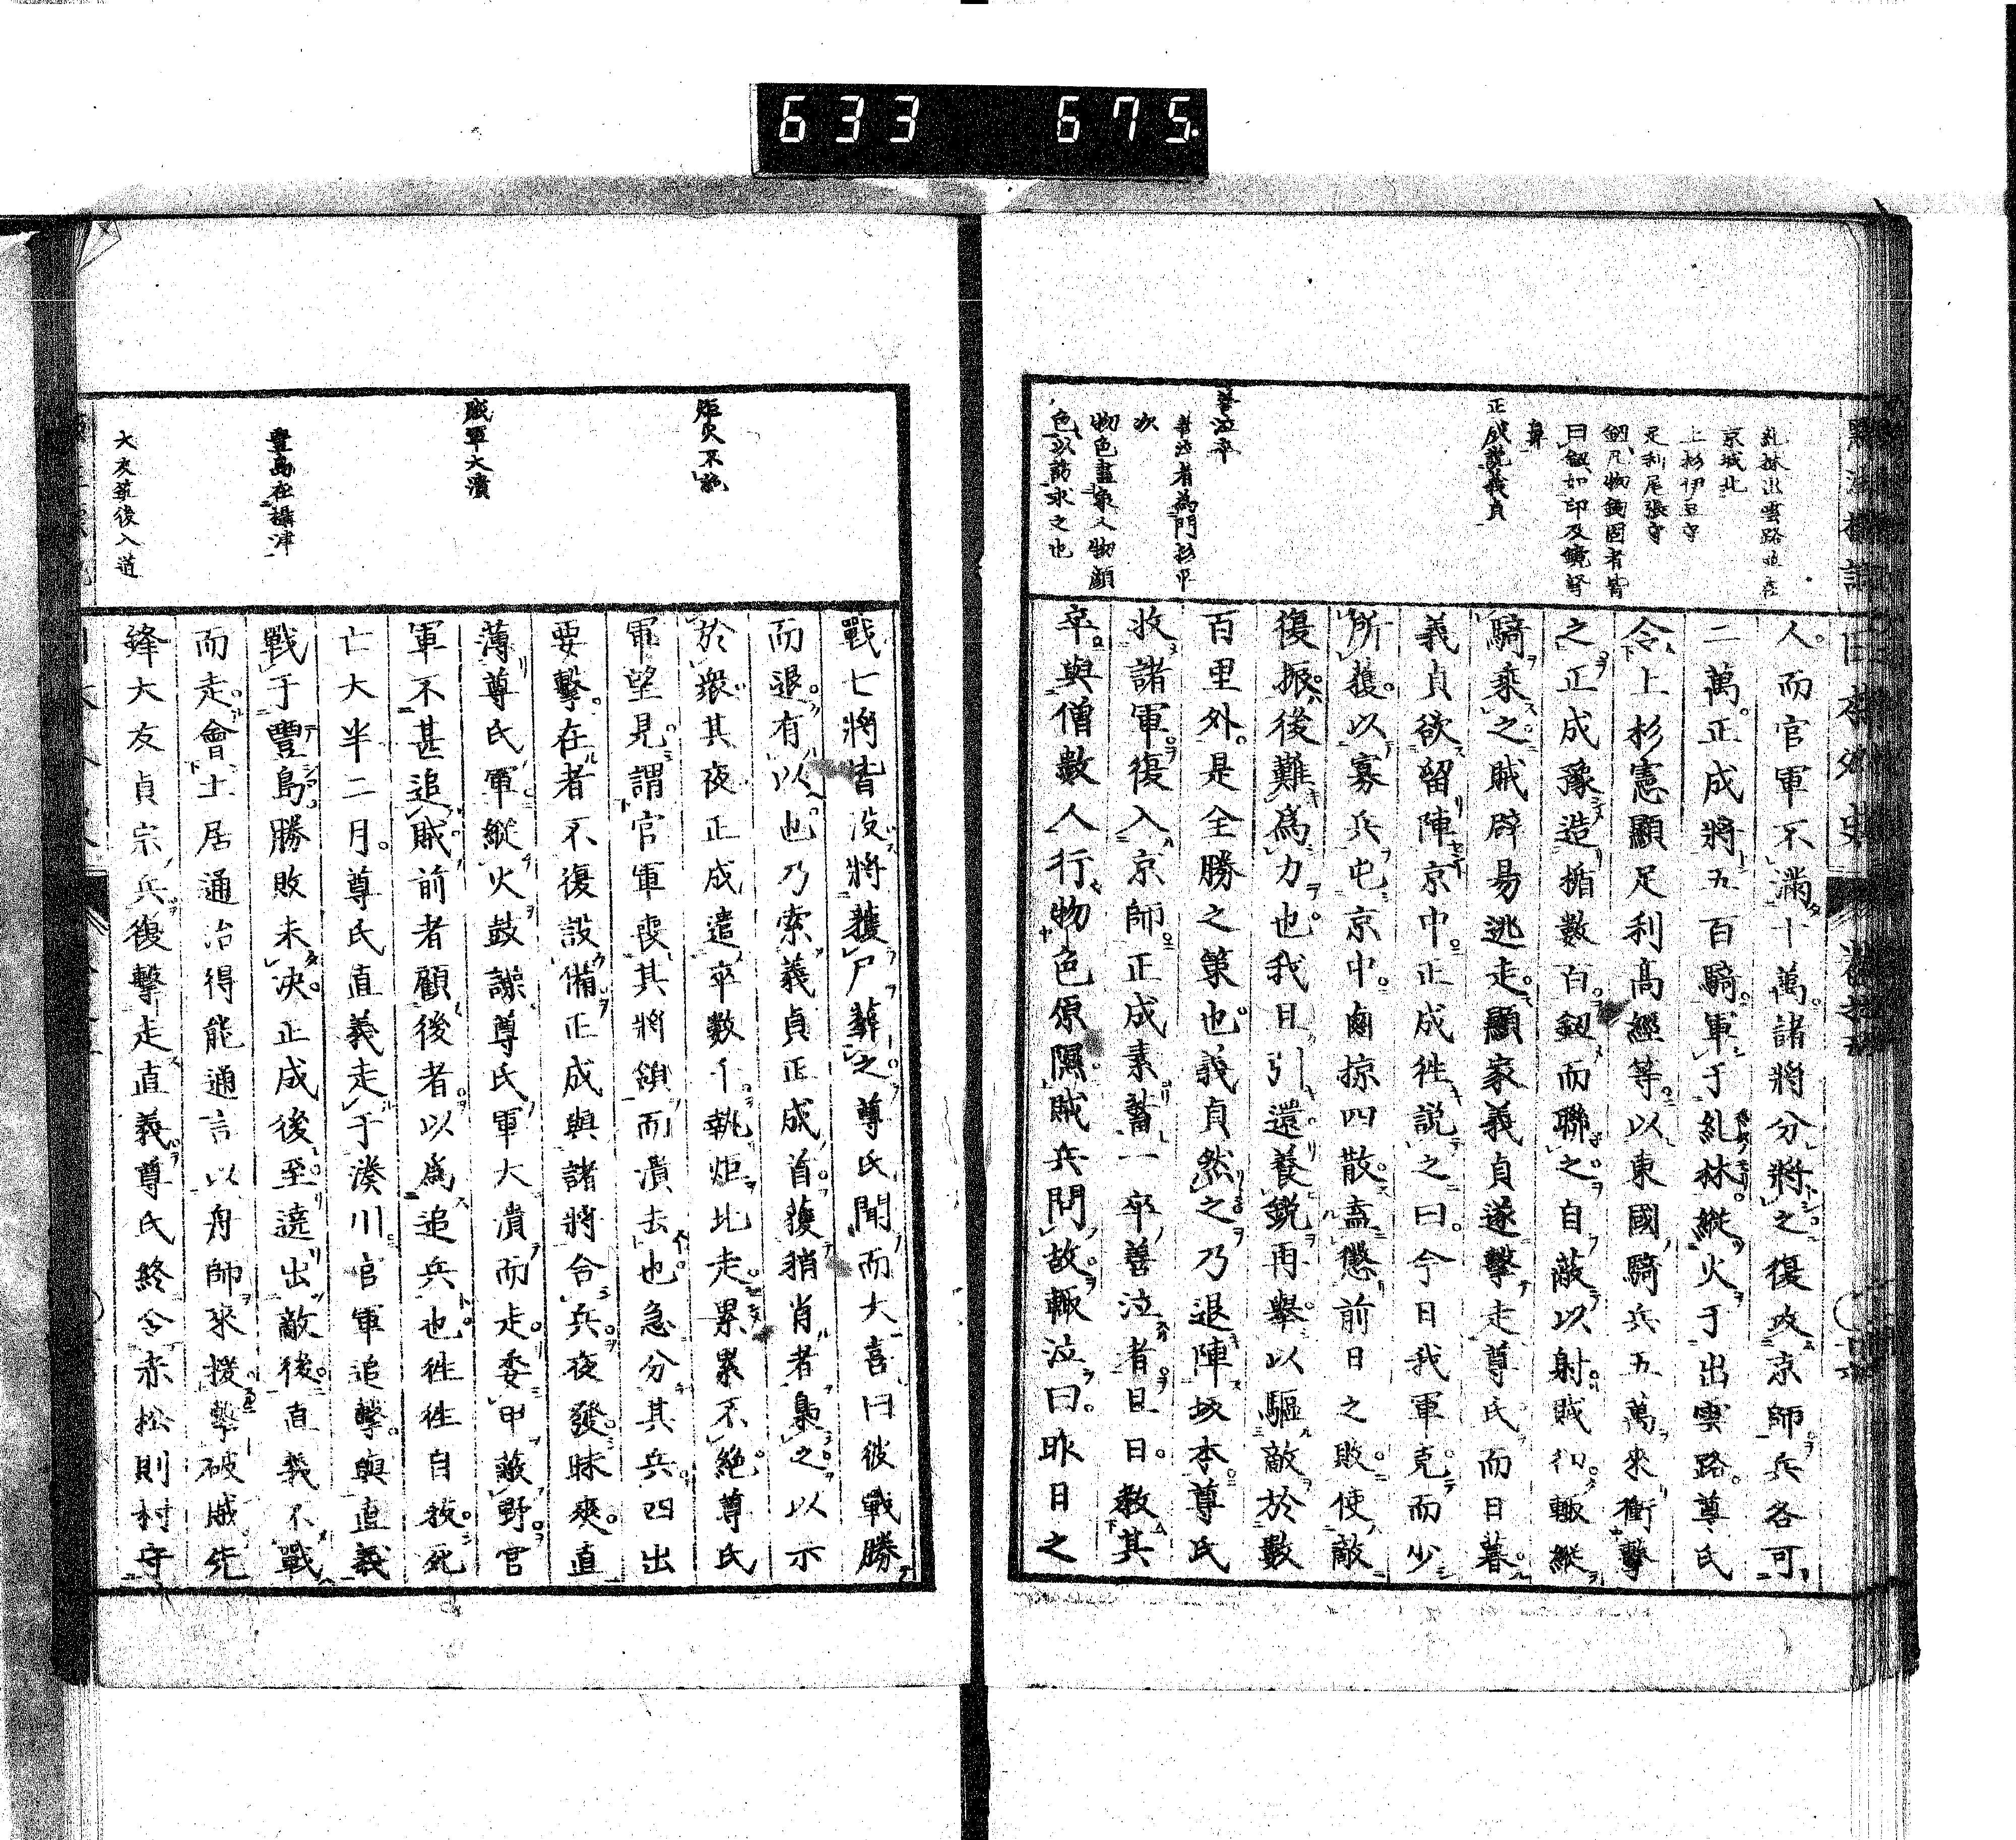 633 675
糺林出雲路並在
京城北
上杉伊豆守
足利尾張守
釼凡物錮固者皆
曰釼如印及鏡弩
鼻
正成説義貞
善泣卒
善泣者為門杉平
次
物色畫象人物顔
色以訪求之也
人而官軍不滿十萬諸將分將之復攻京師兵各可
二萬正成將五百騎軍于糺林縱火于出雲路尊氏
令上杉憲顯足利高經等以東國騎兵五萬來衝擊
之正成豫造楯數百釼而聯之自蔽以射賊却輙縱
騎乘之賊辟易逃走顯家義貞遂擊走尊氏而日暮
義貞欲留陣京中正成徃説之曰今日我軍克而少
所獲以寡兵屯京中鹵掠四散盍懲前日之敗使敵
復振後難爲力也我日引還養鋭再舉以驅敵於數
百里外是全勝之策也義貞然之乃退陣坂本尊氏
收諸軍復入京師正成素蓄一卒善泣者旦日教其
卒與僧數人行物色原隰賊兵問故輙泣曰昨日之
炬火不絶
賊軍大潰
豊島在攝津
大友筑後入道
戰七將皆没將獲尸葬之尊氏聞而大喜曰彼戰勝
而退有以也乃索義貞正成首獲稍肖者梟之以示
於衆其夜正成遣卒數千執炬北走累累不絶尊氏
軍望見謂官軍喪其將領而潰去也急分其兵四出
要擊在者不復設備正成與諸將合兵夜發昧爽直
薄尊氏軍縱火鼓譟尊氏軍大潰而走委甲蔽野官
軍不甚追賊前者顧後者以爲追兵也徃徃自殺死
亡大半二月尊氏直義走于湊川官軍追擊與直義
戰于豐島勝敗未决正成後至遶出敵後直義不戰
而走會土居通治得能通言以舟師來援擊破賊先
鋒大友貞宗兵復擊走直義尊氏終令赤松則村守